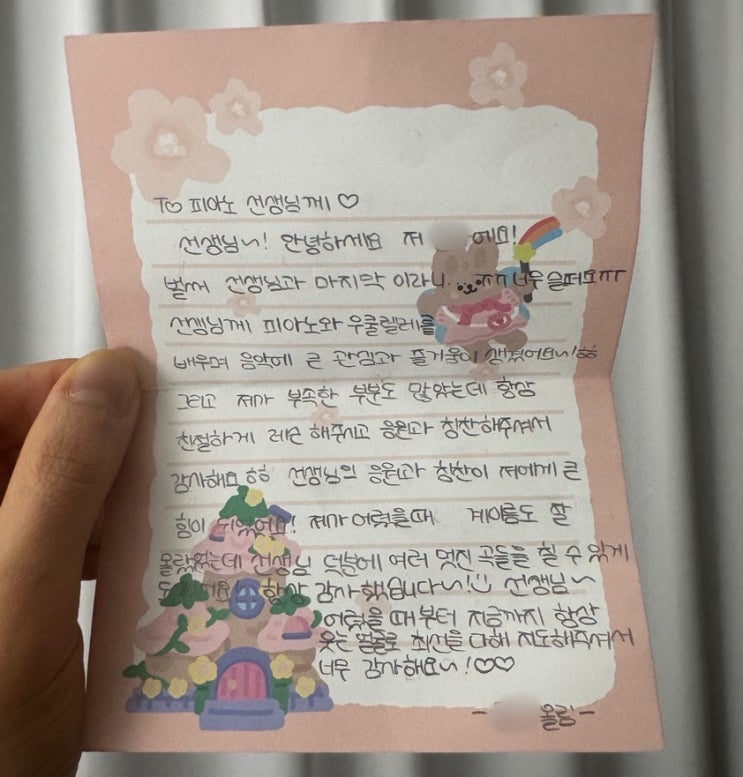 To 피아노 선생님께 ♡
선생님~! 안녕하세요 저 에요!
벌써 선생님과 마지막 이라니.. ㅠㅠ 너무 슬퍼요ㅠㅠ
선생님께 피아노와 우쿨렐레를
배우며 음악에 큰 관심과 즐거움이 생겼어요~!ㅎㅎ
그리고 제가 부족한 부분도 많았는데 항상
친절하게 레슨 해주시고 응원과 칭찬해주셔서
감사해요 ㅎㅎ 선생님의 응원과 칭찬이 저에게 큰
힘이 되었어요! 제가 어렸을때 계이름도 잘
몰랐었는데 선생님 덕분에 여러 멋진 곡들을 칠 수 있게
되었어요! 항상 감사했습니다~!☺ 선생님~
어렸을 때부터 지금까지 항상
웃는 얼굴로 최선을 다해 지도해주셔서
너무 감사해요~!♡♡
- 올림-